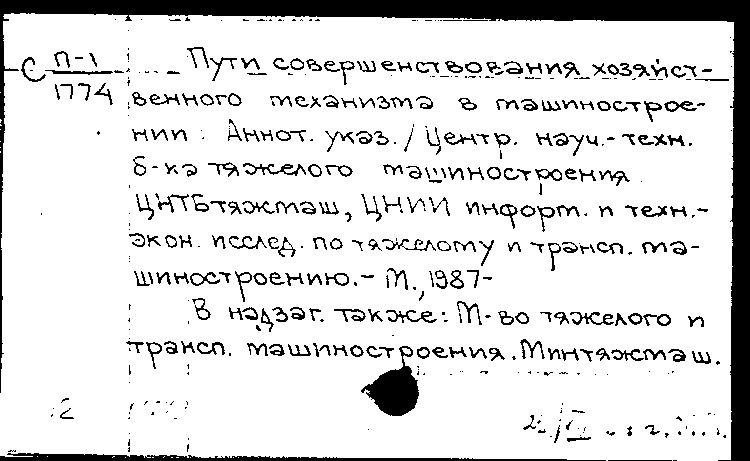 С П-1
1774
Пути совершенствования хозяйст-
венного механизма в машинострое-
нии : Аннот. указ. / Центр. науч.-техн.
б-ка тяжелого машиностроения
ЦНТБтяжмаш, ЦНИИ информ. и техн.-
экон. исслед. по тяжелому и трансп. ма-
шиностроению. - М., 1987-
В надзаг. также: М-во тяжелого и
трансп. машиностроения. Минтяжмаш.